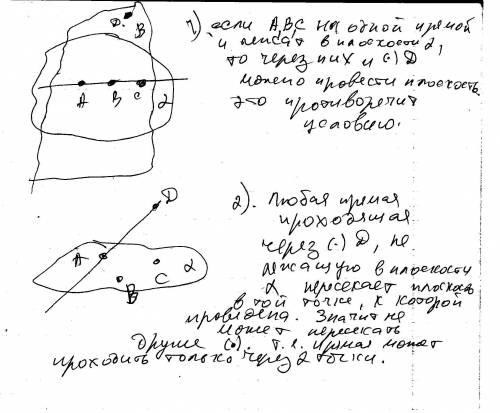 D B
1) если А, В, С на одной прямой
и лежат в плоскости α,
то через них и (·) D
можно провести плоскость
это противоречит
условию.
A B C α
2). Любая прямая
проходящая
через (·) D, не
лежащую в плоскости
α пересекает плоскость
в той точке, к которой
проведена. Значит не
может пересекать
другие (·). т.е. прямая может
проходить только через 2 точки.
D
A C α
B